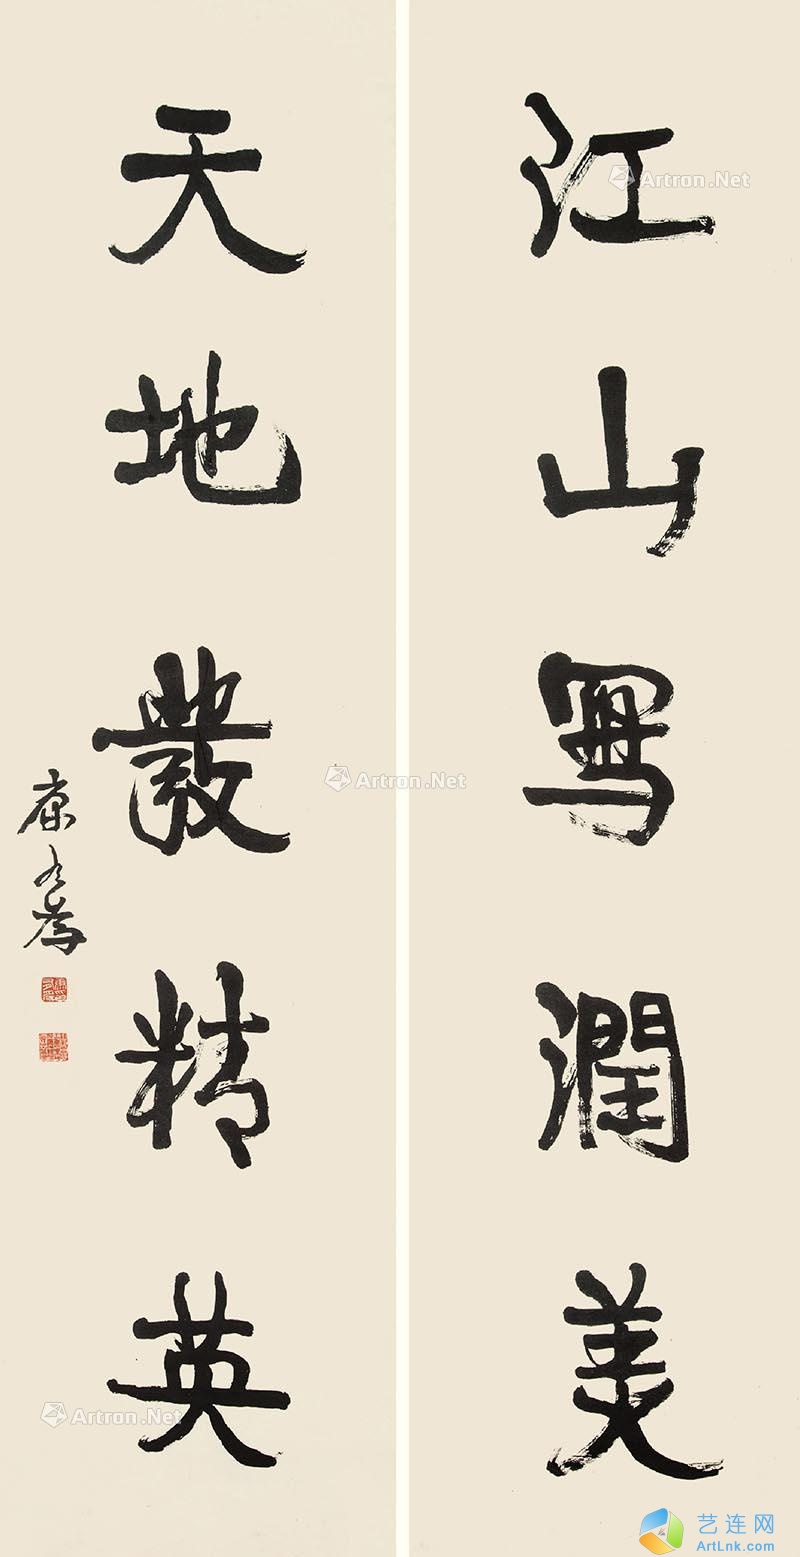 江山潤美
天地發精英
康有為
Artron.Net
Artron.Net
Artron.Net
Artron.Net
艺连网
ArtLnk.com